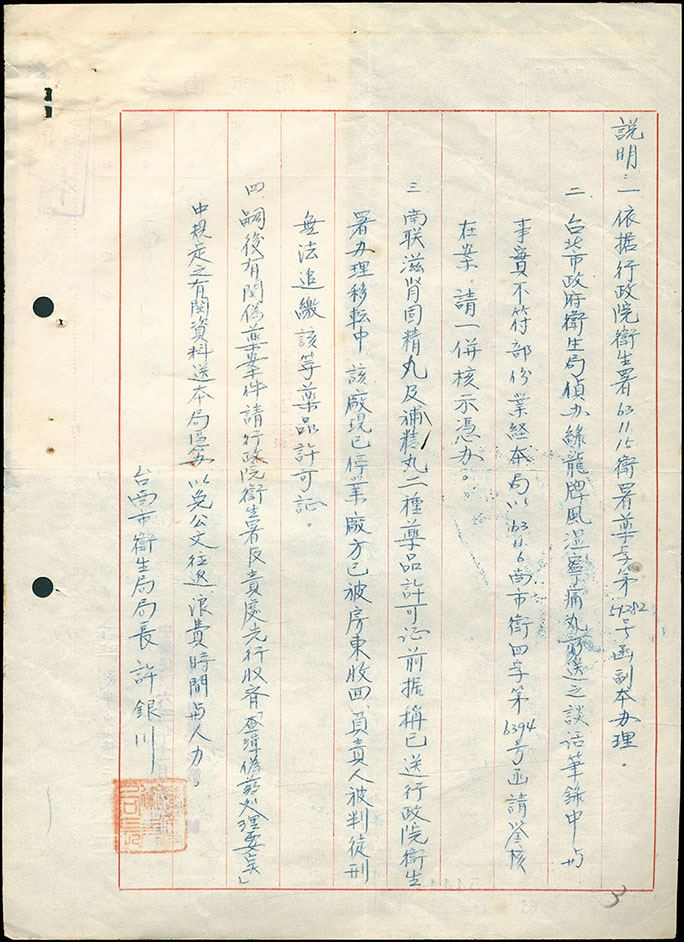 説明：一 依据行政院衛生署63.11.15衛署藥字第51282号函副本办理。
二 台北市政府衛生局偵办綠龍牌風湿寧痛丸所送之談話筆錄中与
事實不符部份業経本局以63.11.6南市衛四字第6394号函請鉴核
在案，請一併核示憑办。
三 南联滋肾固精丸及補精丸二種藥品許可证前据稱已送行政院衛生
署办理移転中，該廠現已停業，廠方已被房東收回，負責人被判徒刑
無法追繳該等藥品許可証。
四 嗣後有関偽藥案件請行政院衛生署反責處先行收齊「查緝偽藥処理要点」
中規定之有関資料送本局區办，以免公文往返，浪費時間与人力。
台南市衛生局局長 許銀川
3